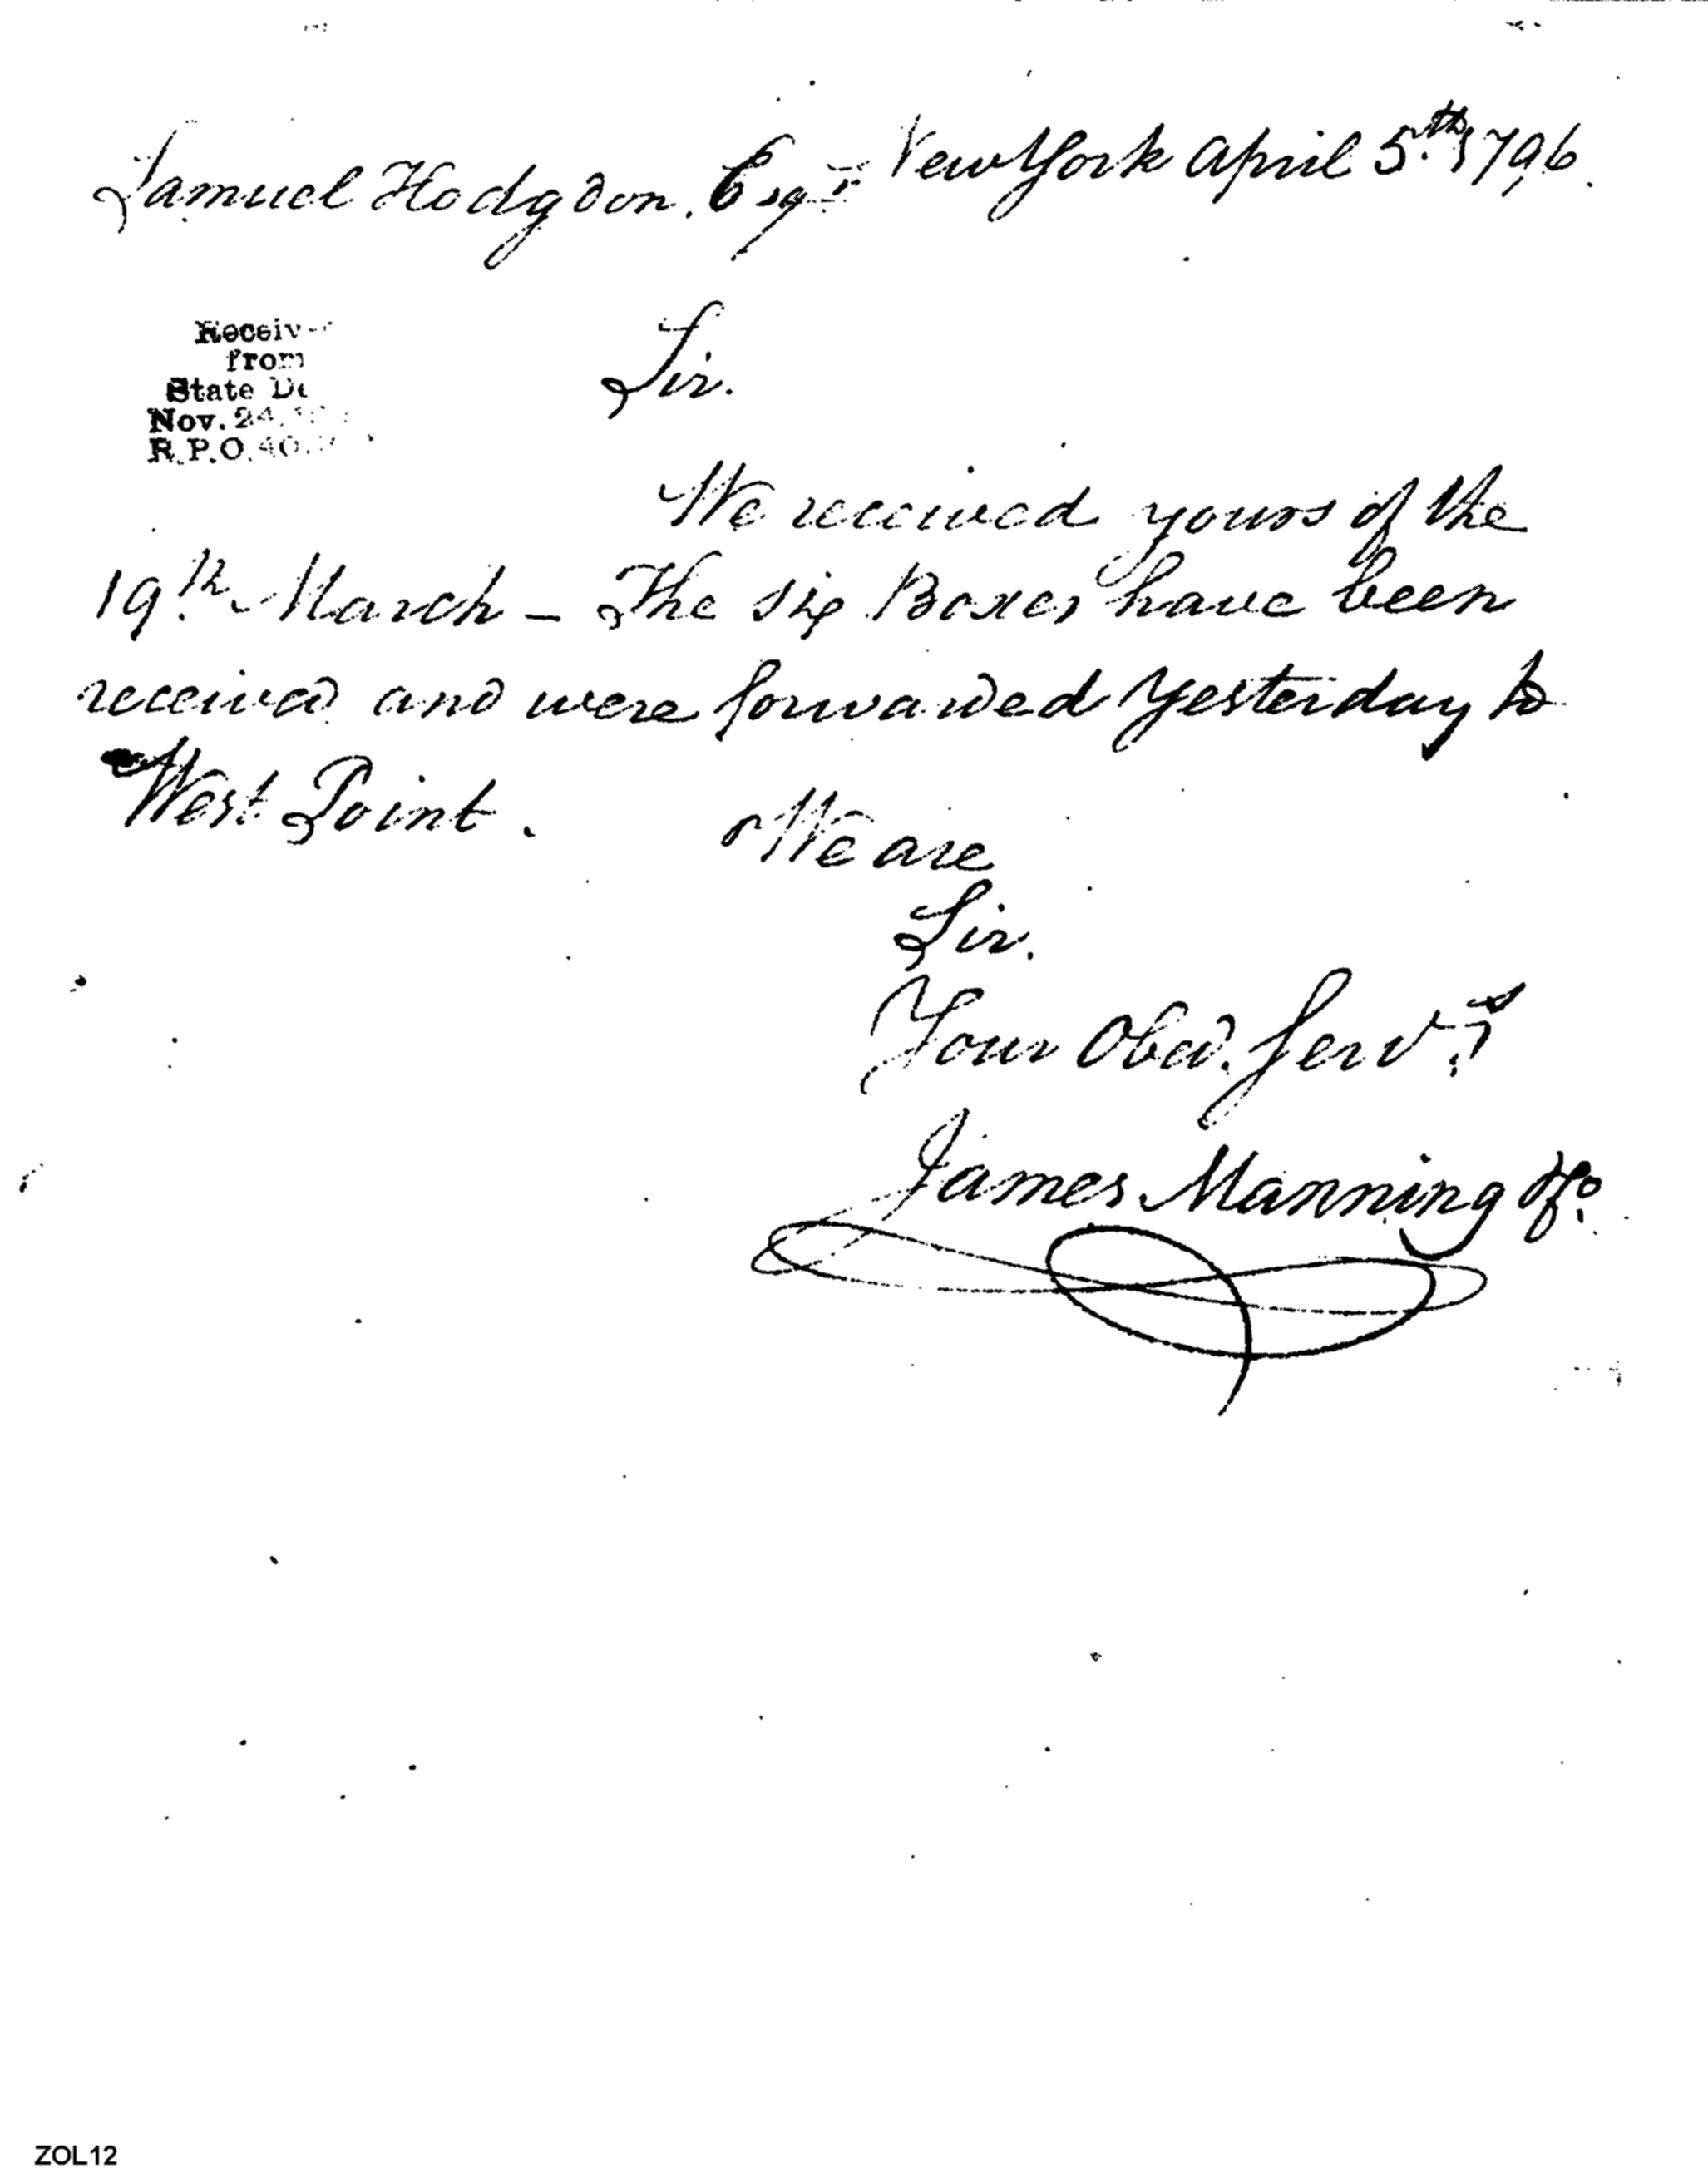 Samuel Hodgdon. Esqr New York April 5th 1796.
Receiv
from
State De
Nov. 24
R.P.O. 40
Sir.
We received yours of the
19th March – The six Boxes have been
received and were forwarded Yesterday to
West Point. We are
Sir.
Your Obed. Servts
James Manning & Co.
ZOL12